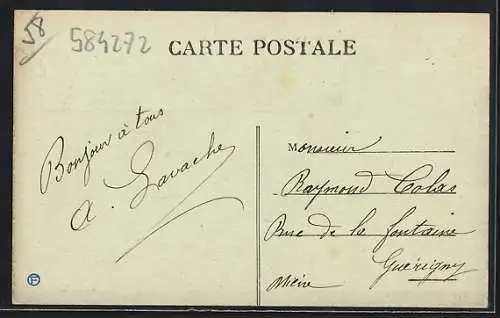 58
584272
CARTE POSTALE
Bonjour à tous
A. Lavache
Monsieur
Raymond Colas
Rue de la fontaine
Guérigny
Nièvre
F